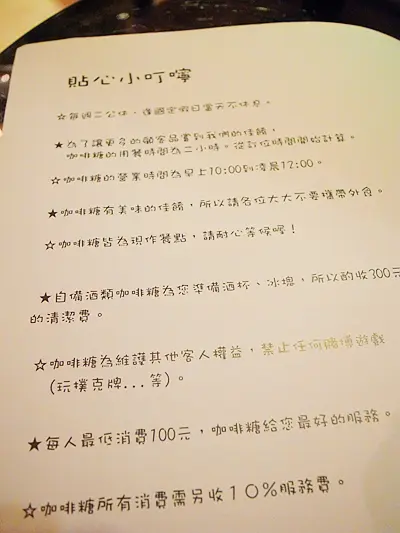 貼心小叮嚀
☆每週二公休，逢國定假日當天不休息。
★為了讓更多的顧客品嘗到我們的佳餚，
咖啡糖的用餐時間為二小時。從訂位時間開始計算。
☆咖啡糖的營業時間為早上10:00到凌晨12:00。
★咖啡糖有美味的佳餚，所以請各位大大不要攜帶外食。
☆咖啡糖皆為現作餐點，請耐心等候喔！
★自備酒類咖啡糖為您準備酒杯、冰塊，所以酌收300元
的清潔費。
☆咖啡糖為維護其他客人權益，禁止任何賭博遊戲
(玩撲克牌...等)。
★每人最低消費100元，咖啡糖給您最好的服務。
☆咖啡糖所有消費需另收10%服務費。